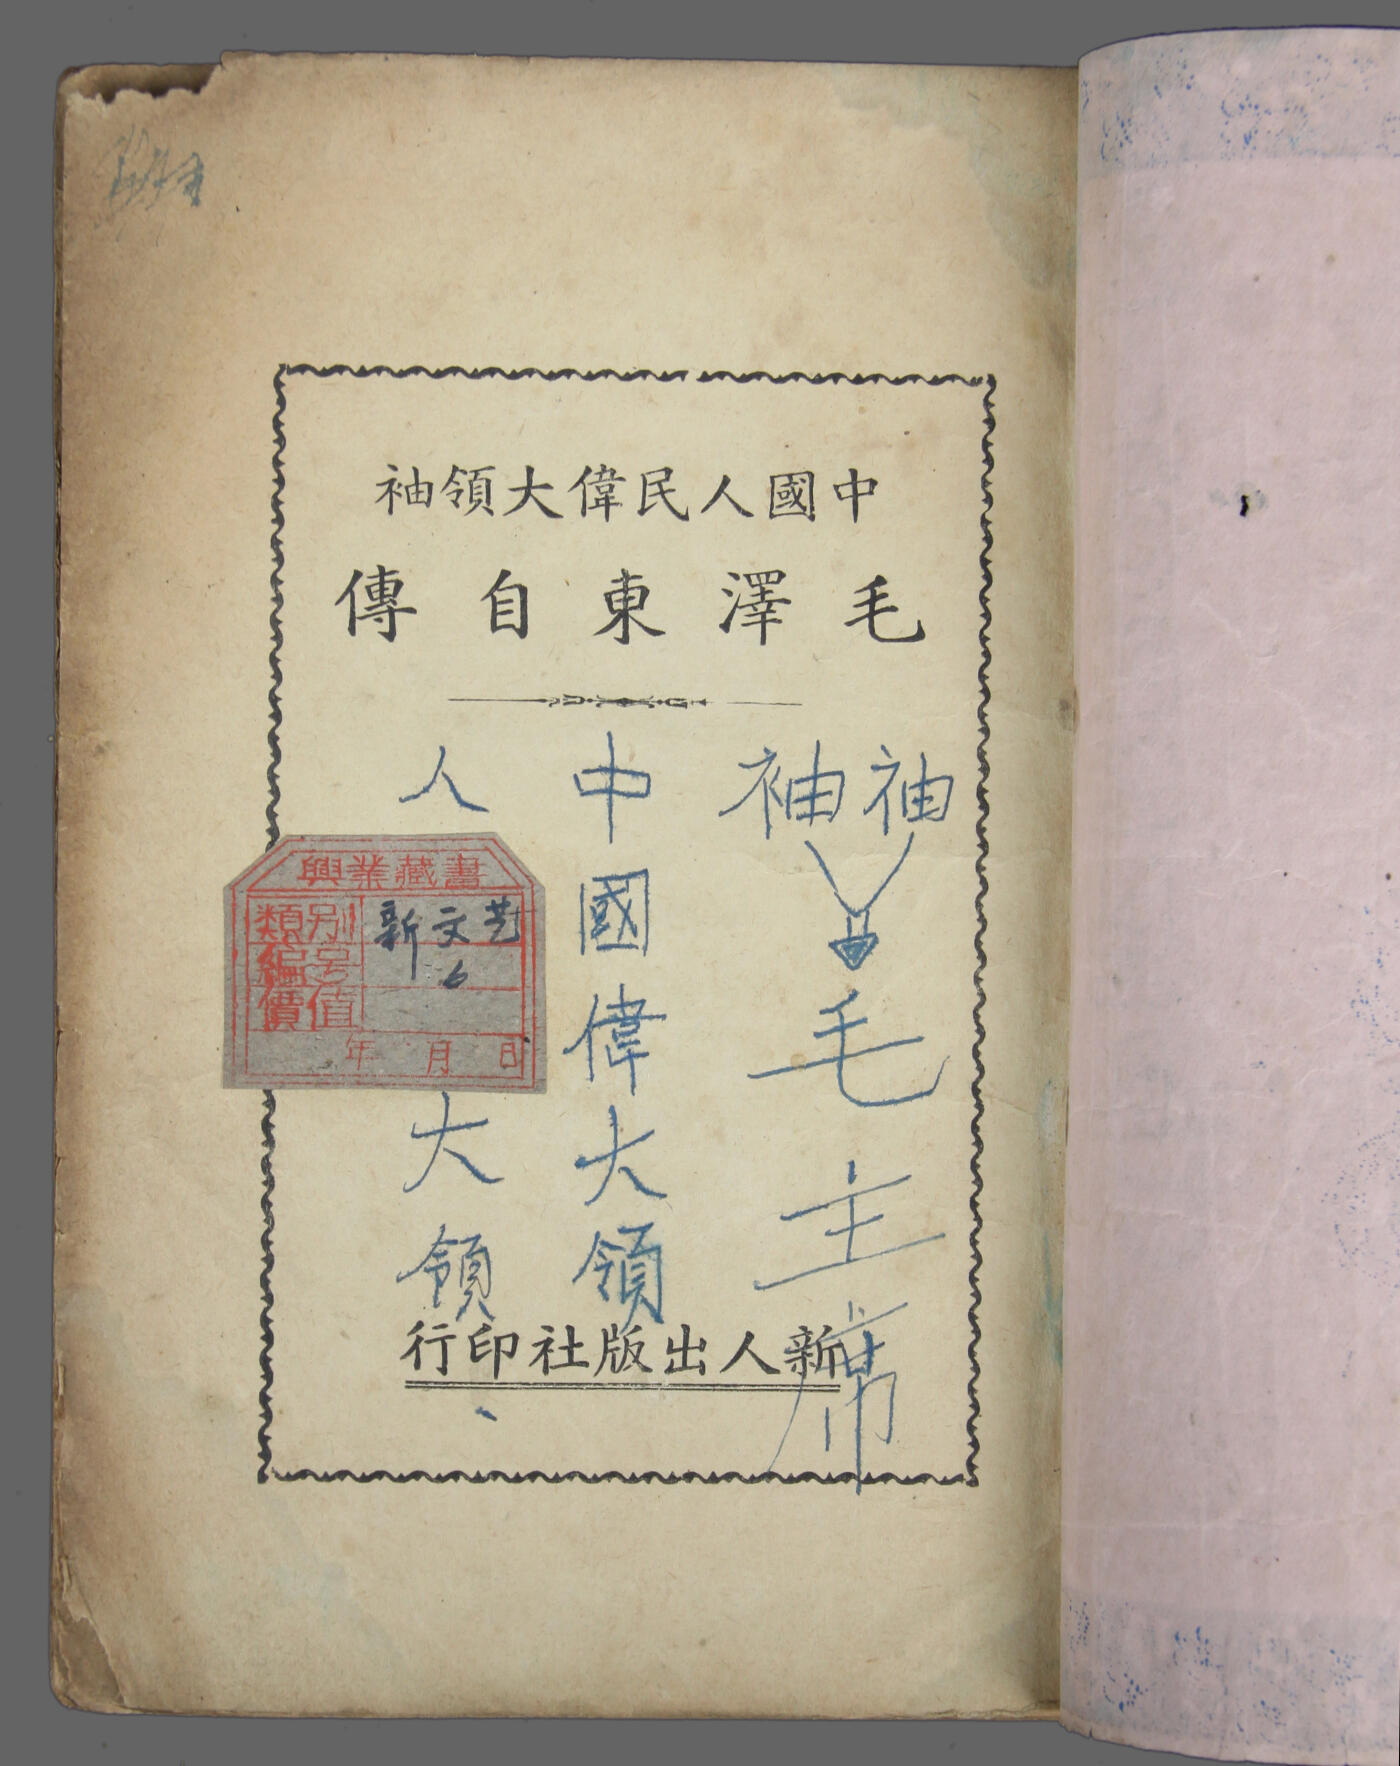 中國人民偉大領袖
毛澤東自傳
袖
袖
毛主席
中國偉大領
人
大領
興業藏書
類別 新文艺
編号 6
價值
年 月 日
新人出版社印行